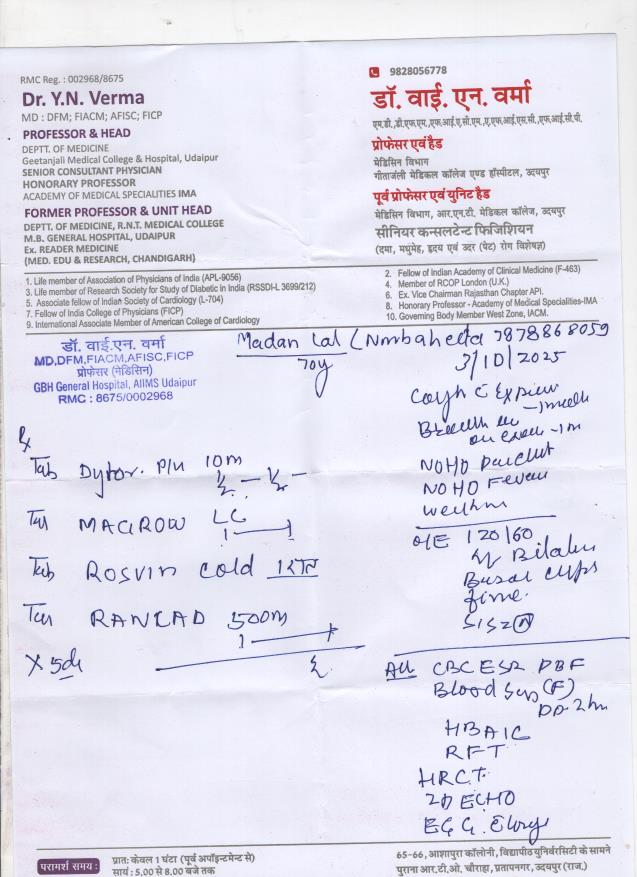 RMC Reg. : 002968/8675
Dr. Y.N. Verma
MD : DFM; FIACM; AFISC; FICP
PROFESSOR & HEAD
DEPTT. OF MEDICINE
Geetanjali Medical College & Hospital, Udaipur
SENIOR CONSULTANT PHYSICIAN
HONORARY PROFESSOR
ACADEMY OF MEDICAL SPECIALITIES IMA
FORMER PROFESSOR & UNIT HEAD
DEPTT. OF MEDICINE, R.N.T. MEDICAL COLLEGE
M.B. GENERAL HOSPITAL, UDAIPUR
Ex. READER MEDICINE
(MED. EDU & RESEARCH, CHANDIGARH)
9828056778
डॉ. वाई. एन. वर्मा
एम.डी.,डी.एफ.एम.,एफ.आई.ए.सी.एम.,ए.एफ.आई.एस.सी.,एफ.आई.सी.पी.
प्रोफेसर एवं हैड
मेडिसिन विभाग
गीतांजली मेडिकल कॉलेज एण्ड हॉस्पीटल, उदयपुर
पूर्व प्रोफेसर एवं यूनिट हैड
मेडिसिन विभाग, आर.एन.टी. मेडिकल कॉलेज, उदयपुर
सीनियर कन्सलटेन्ट फिजिशियन
(दमा, मधुमेह, हृदय एवं उदर (पेट) रोग विशेषज्ञ)
1. Life member of Association of Physicians of India (APL-9056)
3. Life member of Research Society for Study of Diabetic in India (RSSDI-L 3699/212)
5. Associate fellow of Indian Society of Cardiology (L-704)
7. Fellow of India College of Physicians (FICP)
9. International Associate Member of American College of Cardiology
2. Fellow of Indian Academy of Clinical Medicine (F-463)
4. Member of RCOP London (U.K.)
6. Ex. Vice Chairman Rajasthan Chapter API.
8. Honorary Professor - Academy of Medical Specialities-IMA
10. Governing Body Member West Zone, IACM.
डॉ. वाई. एन. वर्मा
MD,DFM,FIACM,AFISC,FICP
प्रोफेसर (मेडिसिन)
GBH General Hospital, AIIMS Udaipur
RMC : 8675/0002968
Madan Lal (Nimbahedа 7878868059
70y
3/10/2025
Cough
-1m
NOHO
NOHO Fever
O/E 120/60
Basal
fine
S1S2 (N)
Rx
Tab Dytor. Plu 10m
½ - ½ -
Tab MACROW LC
1 — 1
Tab ROSVIN Cold 1 रात
Tab RANCAD 500m
1 — 1
X 5d
CBC ESR PBF
Blood Sug (F)
PP 2hr
HBA1C
RFT
HRCT
2D ECHO
ECG
परामर्श समय :
प्रातः केवल 1 घंटा (पूर्व अपॉइन्टमेन्ट से)
सायं : 5.00 से 8.00 बजे तक
65-66, आशापुरा कॉलोनी, विद्यापीठ युनिवरसिटी के सामने
पुराना आर.टी.ओ. चौराहा, प्रतापनगर, उदयपुर (राज.)